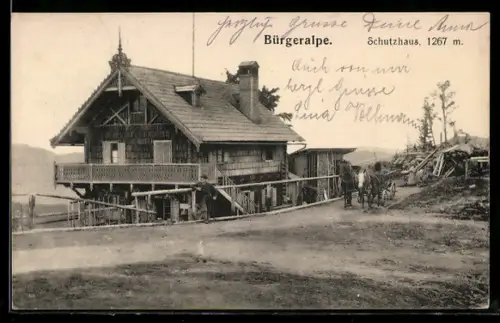 herzliche Grüsse Deine Anna
Bürgeralpe.
Schutzhaus, 1267 m.
Auch von mir
herzl. Grüsse